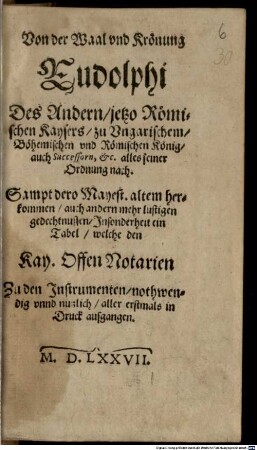 Von der Waal vnd Krönung
Rudolphi
Des Andern/jetzo Römi-
schen Kaysers/zu Vngarischem/
Böhemischen vnd Römischen König/
auch Successorn, &c. alles seiner
Ordnung nach.
Sampt dero Mayest. altem her-
kommen/auch andern mehr lustigen
gedechtnussen/Insonderheit ein
Tabel/welche den
Kay. Offen Notarien
Zu den Instrumenten/nothwen-
dig vnnd nuzlich/aller erstmals in
Druck außgangen.
M. D. LXXVII.
6
30